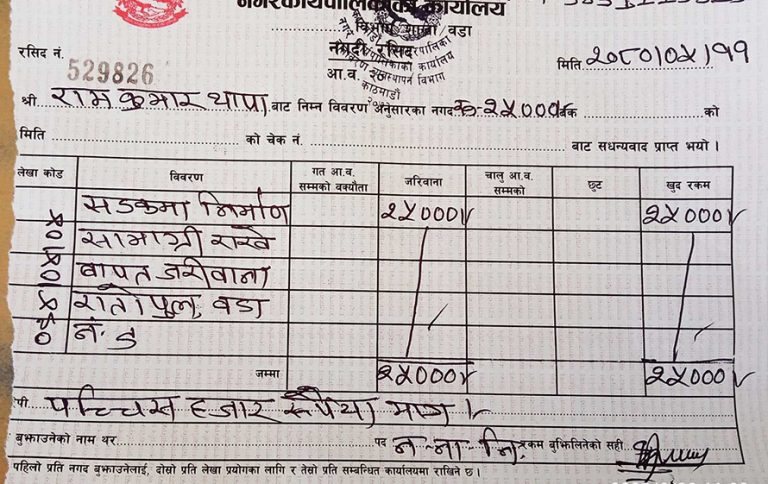 नगरकार्यपालिकाको कार्यालय
विभाग/शाखा/वडा
नगदी रसिद
रसिद नं. 529826
मिति २०८०/०५/११
आ.व.
श्री रामकुमार थापा बाट निम्न विवरण अनुसारका नगद रु-२५०००/- बैंक को
मिति को चेक नं. बाट सधन्यवाद प्राप्त भयो ।
लेखा कोड विवरण गत आ.व. सम्मको वक्यौता जरिवाना चालु आ.व. सम्मको छुट खुद रकम
सडकमा निर्माण २५०००/- २५०००/-
सामाग्री राखे
वापत जरीवाना
रातोपुल, वडा
नं. ८
जम्मा २५०००/- २५०००/-
पच्चिस हजार रूपैया मात्र ।-
बुझाउनेको नाम थर पद न-ना-नि. रकम बुझिलिनेको सही
पहिलो प्रति नगद बुझाउनेलाई, दोस्रो प्रति लेखा प्रयोगका लागि र तेस्रो प्रति सम्बन्धित कार्यालयमा राखिने छ ।